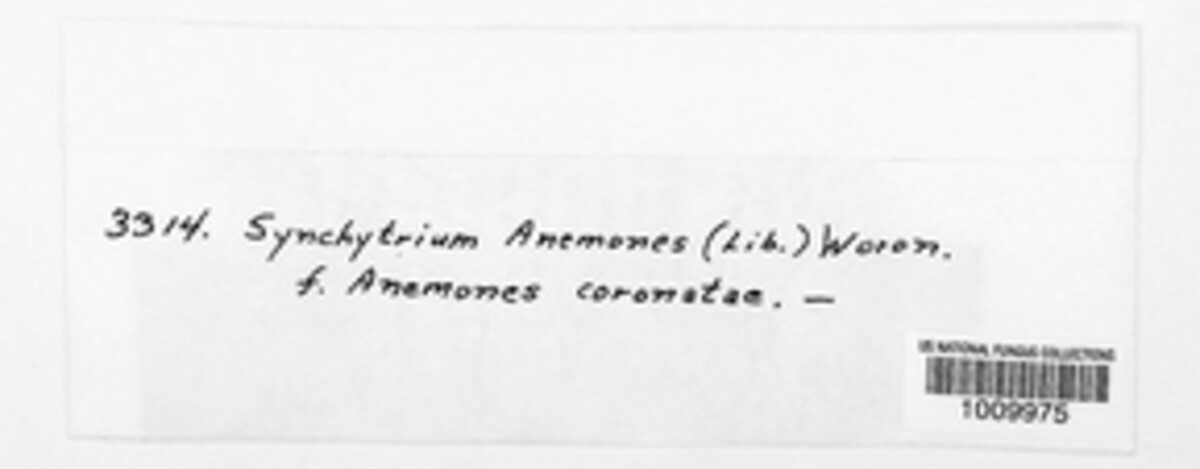 3314. Synchytrium Anemones (Lib.) Woron.
f. Anemones coronatae. —
US NATIONAL FUNGUS COLLECTIONS
1009975